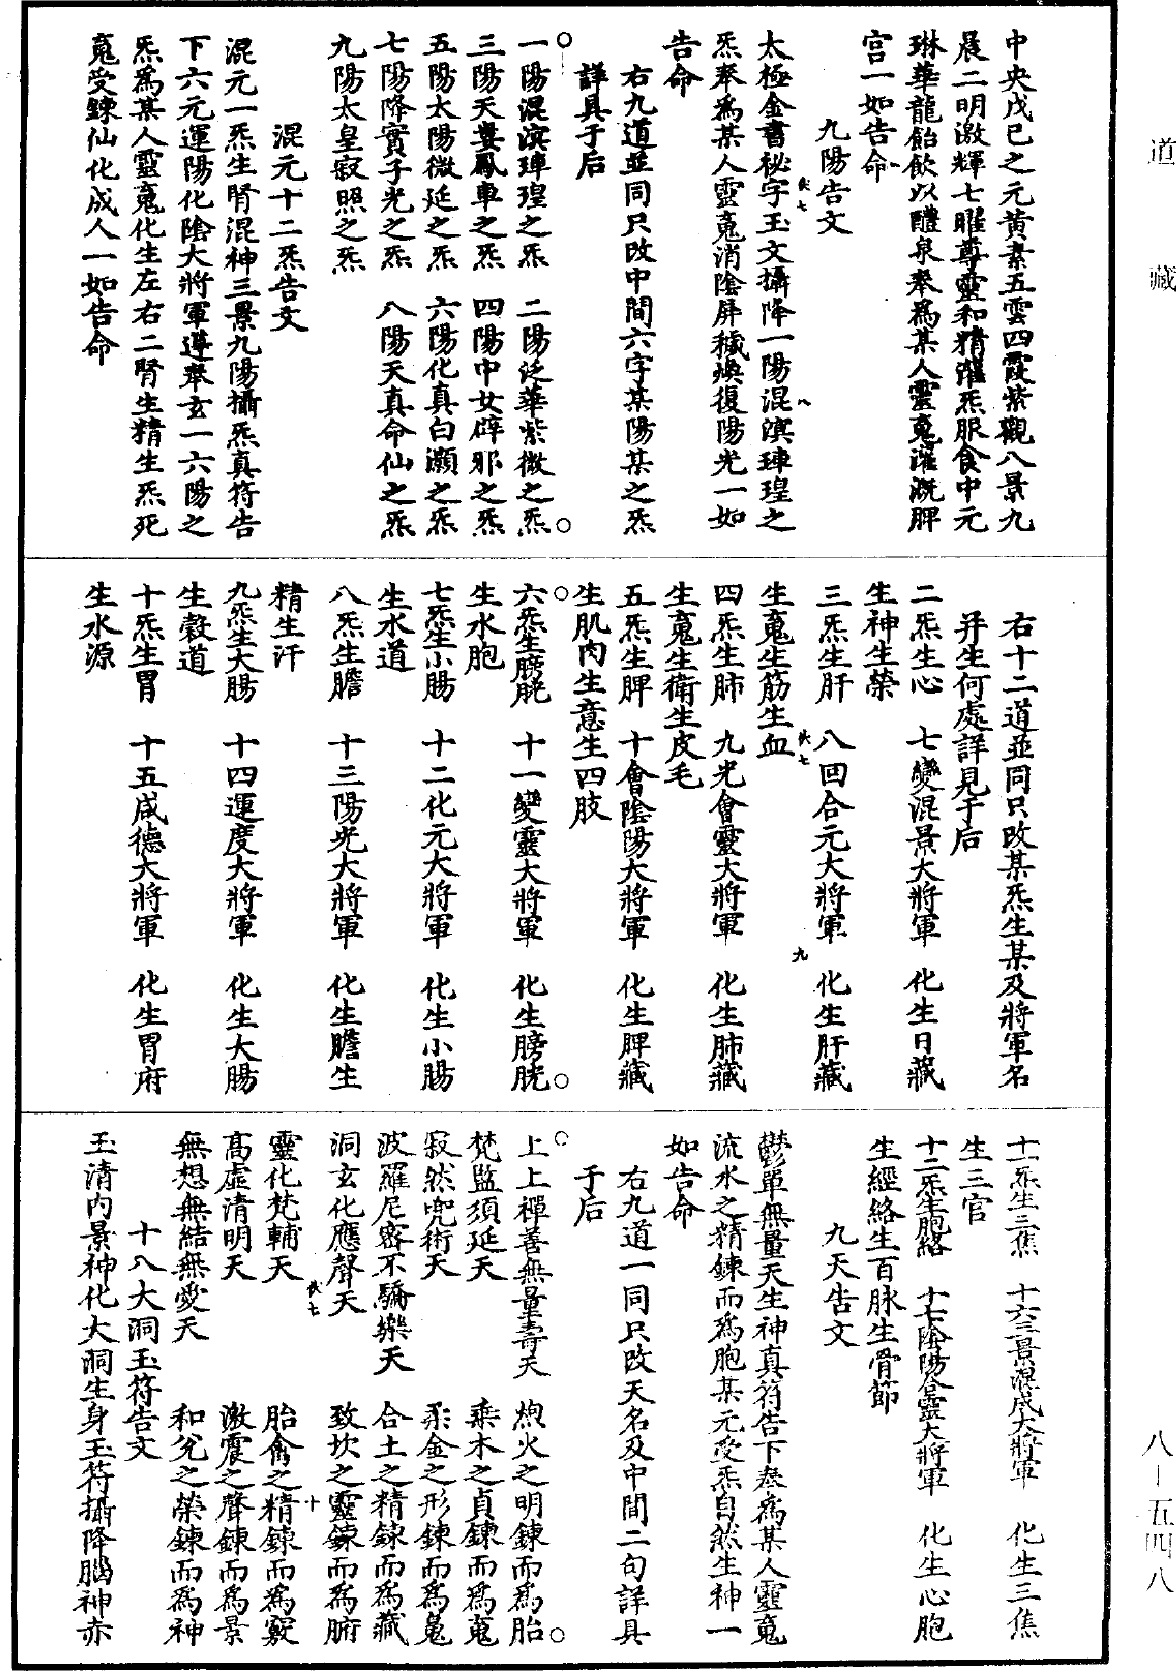 道藏
中央戊巳之元黄素五雲四霞紫觀八景九
晨二明激輝七曜尊靈和精灌炁服食中元
琳華龍飴飲以醴泉奉為某人靈䰟灌溉脾
宮一如告命
九陽告文
太極金書祕字玉文攝降一陽混溟琿瑝之
炁奉為某人靈䰟消陰屏穢煥復陽光一如
告命
右九道並同只改中間六字某陽某之炁
詳具于后
一陽混溟琿瑝之炁　二陽泛華紫微之炁
三陽天婁鳳車之炁　四陽中女辟邪之炁
五陽太陽微延之炁　六陽化真白灝之炁
七陽降賓子光之炁　八陽天真命仙之炁
九陽太皇寂照之炁
混元十二炁告文
混元一炁生腎混神三景九陽攝炁真符告
下六元運陽化陰大將軍遵奉玄一六陽之
炁為某人靈䰟化生左右二腎生精生炁死
䰟受鍊仙化成人一如告命
右十二道並同只改某炁生某及將軍名
并生何處詳見于后
二炁生心　七變混景大將軍　化生日藏
生神生榮
三炁生肝　八回合元大將軍　化生肝藏
生䰟生筋生血
四炁生肺　九光會靈大將軍　化生肺藏
生䰟生衛生皮毛
五炁生脾　十會陰陽大將軍　化生脾藏
生肌肉生意生四肢
六炁生膀胱　十一變靈大將軍　化生膀胱
生水胞
七炁生小腸　十二化元大將軍　化生小腸
生水道
八炁生膽　十三陽光大將軍　化生膽生
精生汗
九炁生大腸　十四運度大將軍　化生大腸
生穀道
十炁生胃　十五咸德大將軍　化生胃府
生水源
十一炁生三焦　十六三景混成大將軍　化生三焦
生三官
十二炁生胞絡　十七陰陽合靈大將軍　化生心胞
生經絡生百脉生骨節
九天告文
鬱單無量天生神真符告下奉為某人靈䰟
流水之精鍊而為胞某元受炁自然生神一
如告命
右九道一同只改天名及中間二句詳具
于后
上上禪善無量壽天　煦火之明鍊而為胎
梵監須延天　乘木之貞鍊而為䰟
寂然兜術天　柔金之形鍊而為䰟
波羅尼密不驕樂天　合土之精鍊而為藏
洞玄化應聲天　致坎之靈鍊而為腑
靈化梵輔天　胎離之精鍊而為竅
高虛清明天　激震之聲鍊而為景
無想無結無愛天　和兊之榮鍊而為神
十八大洞玉符告文
玉清內景神化大洞生身玉符攝降腦神赤
八—五四八